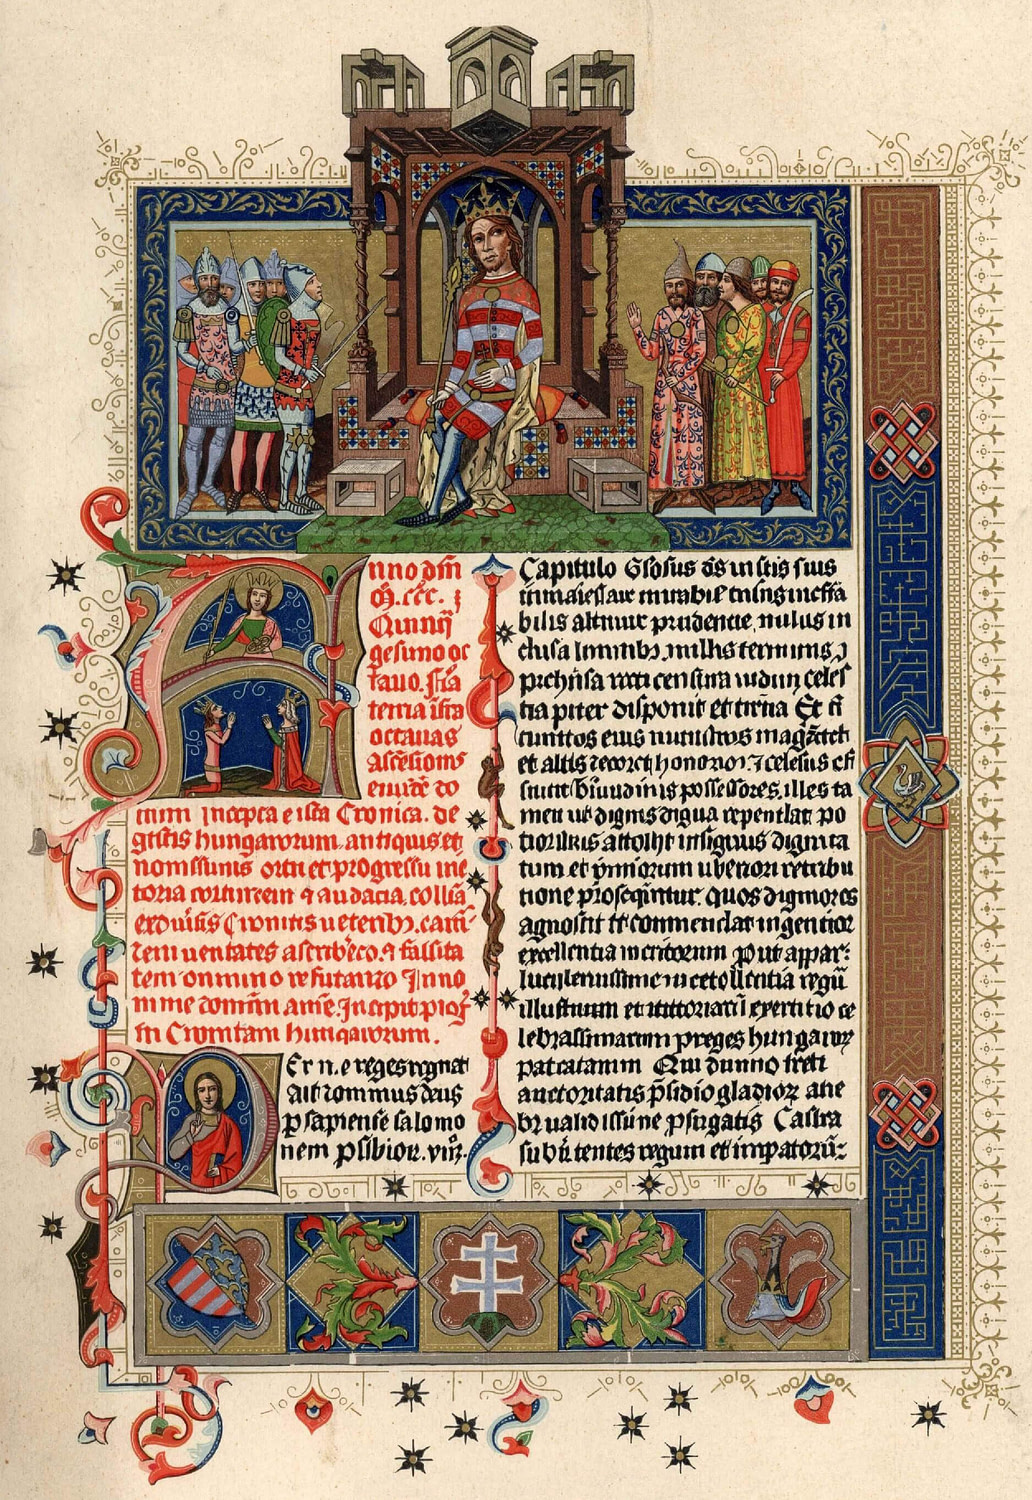 Anno dm
M.ccc. ɿ
Quinq̄
gesimo oc
tauo. Fīa
tertia ifra
octauas
Ascēsionis
eiusdē do
mini incepta e ista Cronica. de
gestis hungarorum antiquis et
nouissimis ortu et progressu uic
toria eorumdem & audacia, collcā
ex diūsis Cronicis ueteribȝ. earū
dem ueritates ascribēdo & falsita
tem omnino refutando In no
mine domini amē. Incepit plog
in Cronicam hungarorum.
Per me reges regnāt
ait dominus deus
p sapientē salomo
nem pūbior. viiī.
Capitulo Gl'osus ds in scis suis
in maiestate mirabil' cuius ineffa
bilis altitudo prudencie, nullis in
clusa limitibȝ. nullis terminis ɔ
prehēsa recti censura iudicij celes
tia pariter disponit et terrēa Et si
cunctos eius ministros magnificet
et altis decoret honoribȝ. & celestis effi
ciat btitudinis possessores. illos ta
men ut dignis digna rependat po
tioribus attollit insigniis dignita
tum et pmiorum uberiori retribu
tione prosequitur. quos digniores
agnoscit et commendat ingentior
excellentia meritorum Prout appar̄
luculentissime in excellentia regū
illustrium et uictoriarū exercitio ce
leberrimarum p reges hungaroꝝ
patratarum Qui diuino freti
auctoritatis p̄sidio gladioꝝ acie
hr ualidissime p̄fugatis Castra
subūtentes regum et impatorū: